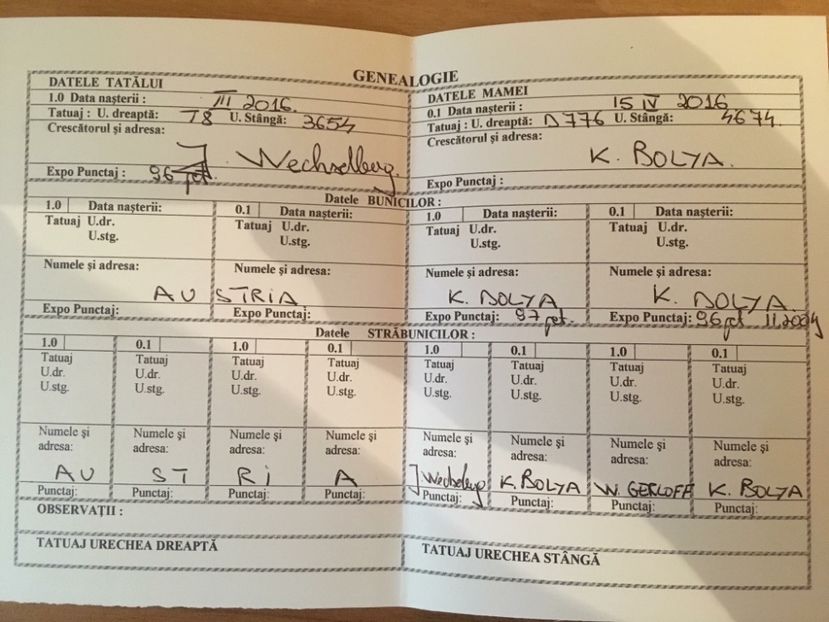 GENEALOGIE
DATELE TATĂLUI
1.0 Data nașterii : III 2016.
Tatuaj : U. dreaptă: T8 U. Stângă: 3654
Crescătorul și adresa:
J. Wechselberg.
Expo Punctaj : 96 pct
DATELE MAMEI
0.1 Data nașterii : 15 IV 2016
Tatuaj : U. dreaptă: D776 U. Stângă: 4674.
Crescătorul și adresa:
K. BOLYA.
Expo Punctaj :
Datele BUNICILOR :
1.0 Data nașterii: 0.1 Data nașterii: 1.0 Data nașterii: 0.1 Data nașterii:
Tatuaj U.dr. Tatuaj U.dr. Tatuaj U.dr. Tatuaj U.dr.
U.stg. U.stg. U.stg. U.stg.
Numele și adresa: Numele și adresa: Numele și adresa: Numele și adresa:
AU STRIA K. BOLYA K. BOLYA
Expo Punctaj: Expo Punctaj: Expo Punctaj: 97 pct. Expo Punctaj: 96 pct
Datele STRĂBUNICILOR :
1.0 0.1 1.0 0.1 1.0 0.1 1.0 0.1
Tatuaj Tatuaj Tatuaj Tatuaj Tatuaj Tatuaj Tatuaj Tatuaj
U.dr. U.dr. U.dr. U.dr. U.dr. U.dr. U.dr. U.dr.
U.stg. U.stg. U.stg. U.stg. U.stg. U.stg. U.stg. U.stg.
Numele și Numele și Numele și Numele și Numele și Numele și Numele și Numele și
adresa: adresa: adresa: adresa: adresa: adresa: adresa: adresa:
AU ST RI A J Wechselberg K. BOLYA W. GERLOFF K. BOLYA
Punctaj: Punctaj: Punctaj: Punctaj: Punctaj: Punctaj: Punctaj: Punctaj:
OBSERVAȚII :
TATUAJ URECHEA DREAPTĂ
TATUAJ URECHEA STÂNGĂ